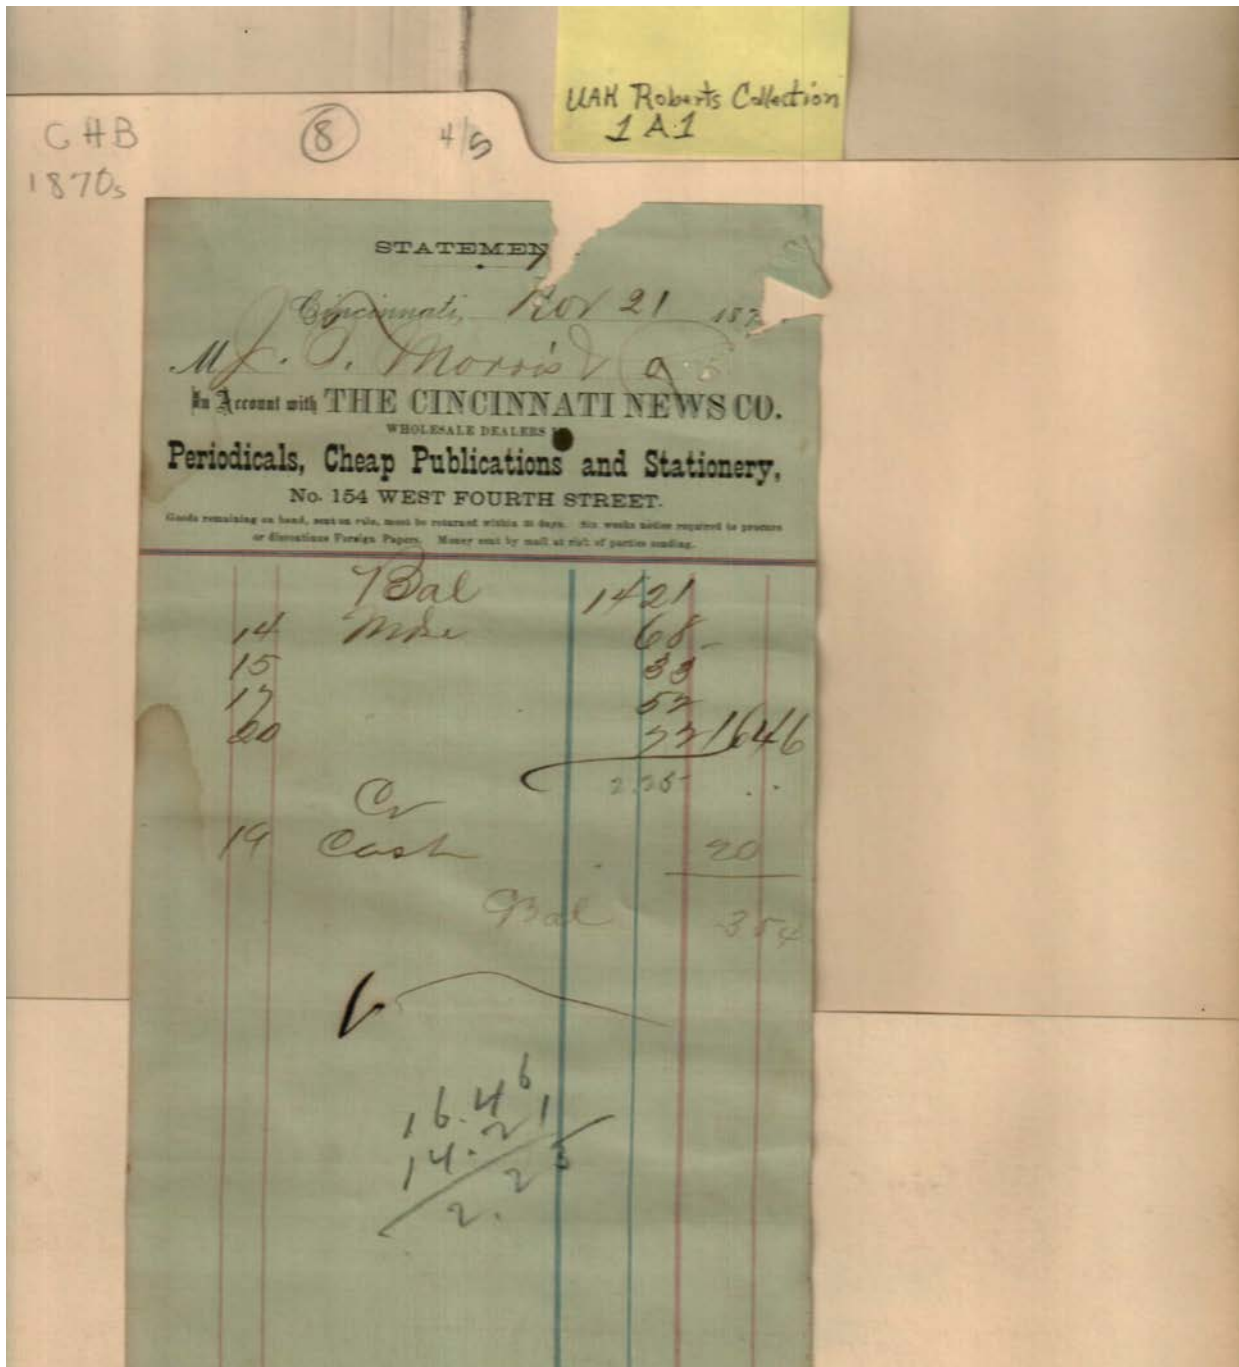 UAH Roberts Collection
1 A.1
CHB 8 4/5
1870s
STATEMEN
Cincinnati, Nov 21 187
M J. Morris &
In Account with THE CINCINNATI NEWS CO.
WHOLESALE DEALERS
Periodicals, Cheap Publications and Stationery,
No. 154 WEST FOURTH STREET.
Goods remaining on hand, sent on sale, must be returned within 30 days. Six weeks notice required to procure
or discontinue Foreign Papers. Money sent by mail at risk of parties sending.
Bal 14 21
14 Mdse 68
15 33
17 52
20 72 16 46
2.25
Cr
19 Cash 20
Bal 3 54
16.46
14.21
2.25